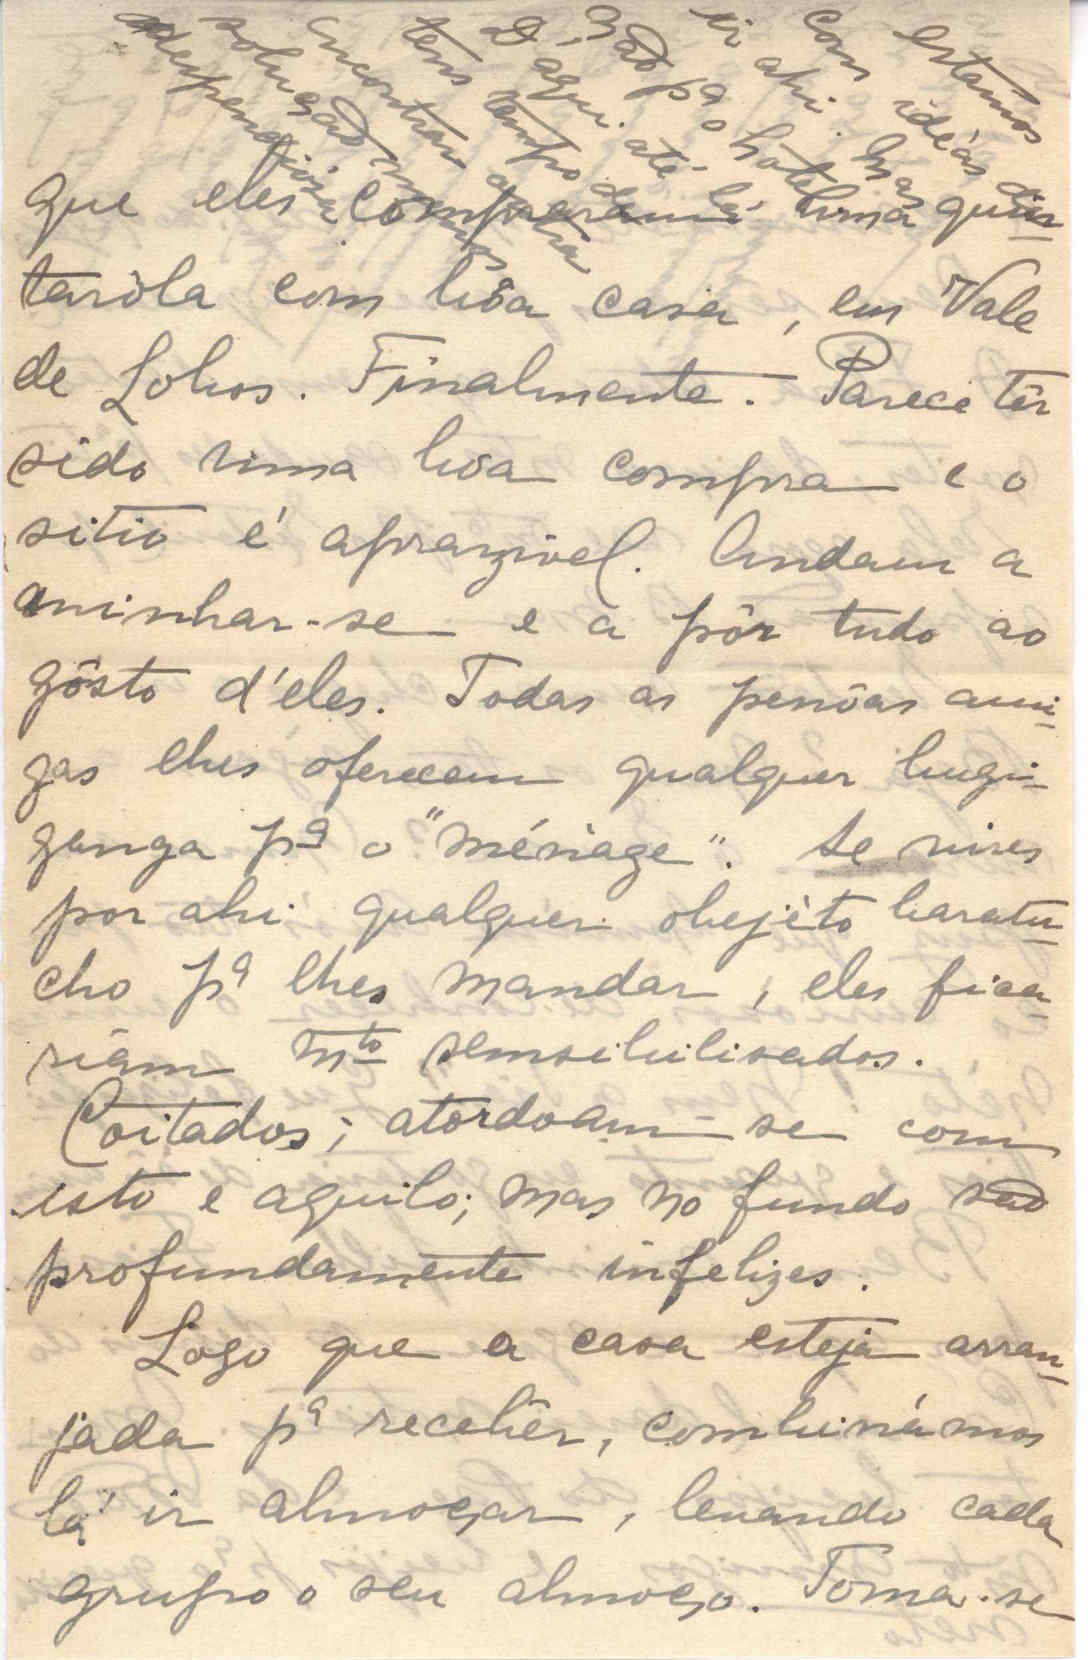 estamos
com idéas de
ir ahi. Mas
não pª o hotel.
D'aqui até lá
tens tempo de
encontrar outra
solução menos
dispendiosa
que eles compraram uma quin-
taróla com bôa casa, em Vale
de Lobos. Finalmente. Parece têr
sido uma bôa compra e o
sitio é aprazivel. Andam a
aninhar-se e a pôr tudo ao
gôsto d'eles. Todas as pessôas ami-
gas lhes oferecem qualquer bugi-
ganga pª o "ménage". Se vires
por ahi qualquer objéto baratu-
cho pª lhes mandar, eles fica-
riam mto sensibilisados.
Coitados; atordoam-se com
isto e aquilo; mas no fundo são
profundamente infelizes.
Logo que a casa esteja arran-
jada pª recebêr, combinámos
lá ir almoçar, levando cada
grupo o seu almoço. Toma-se